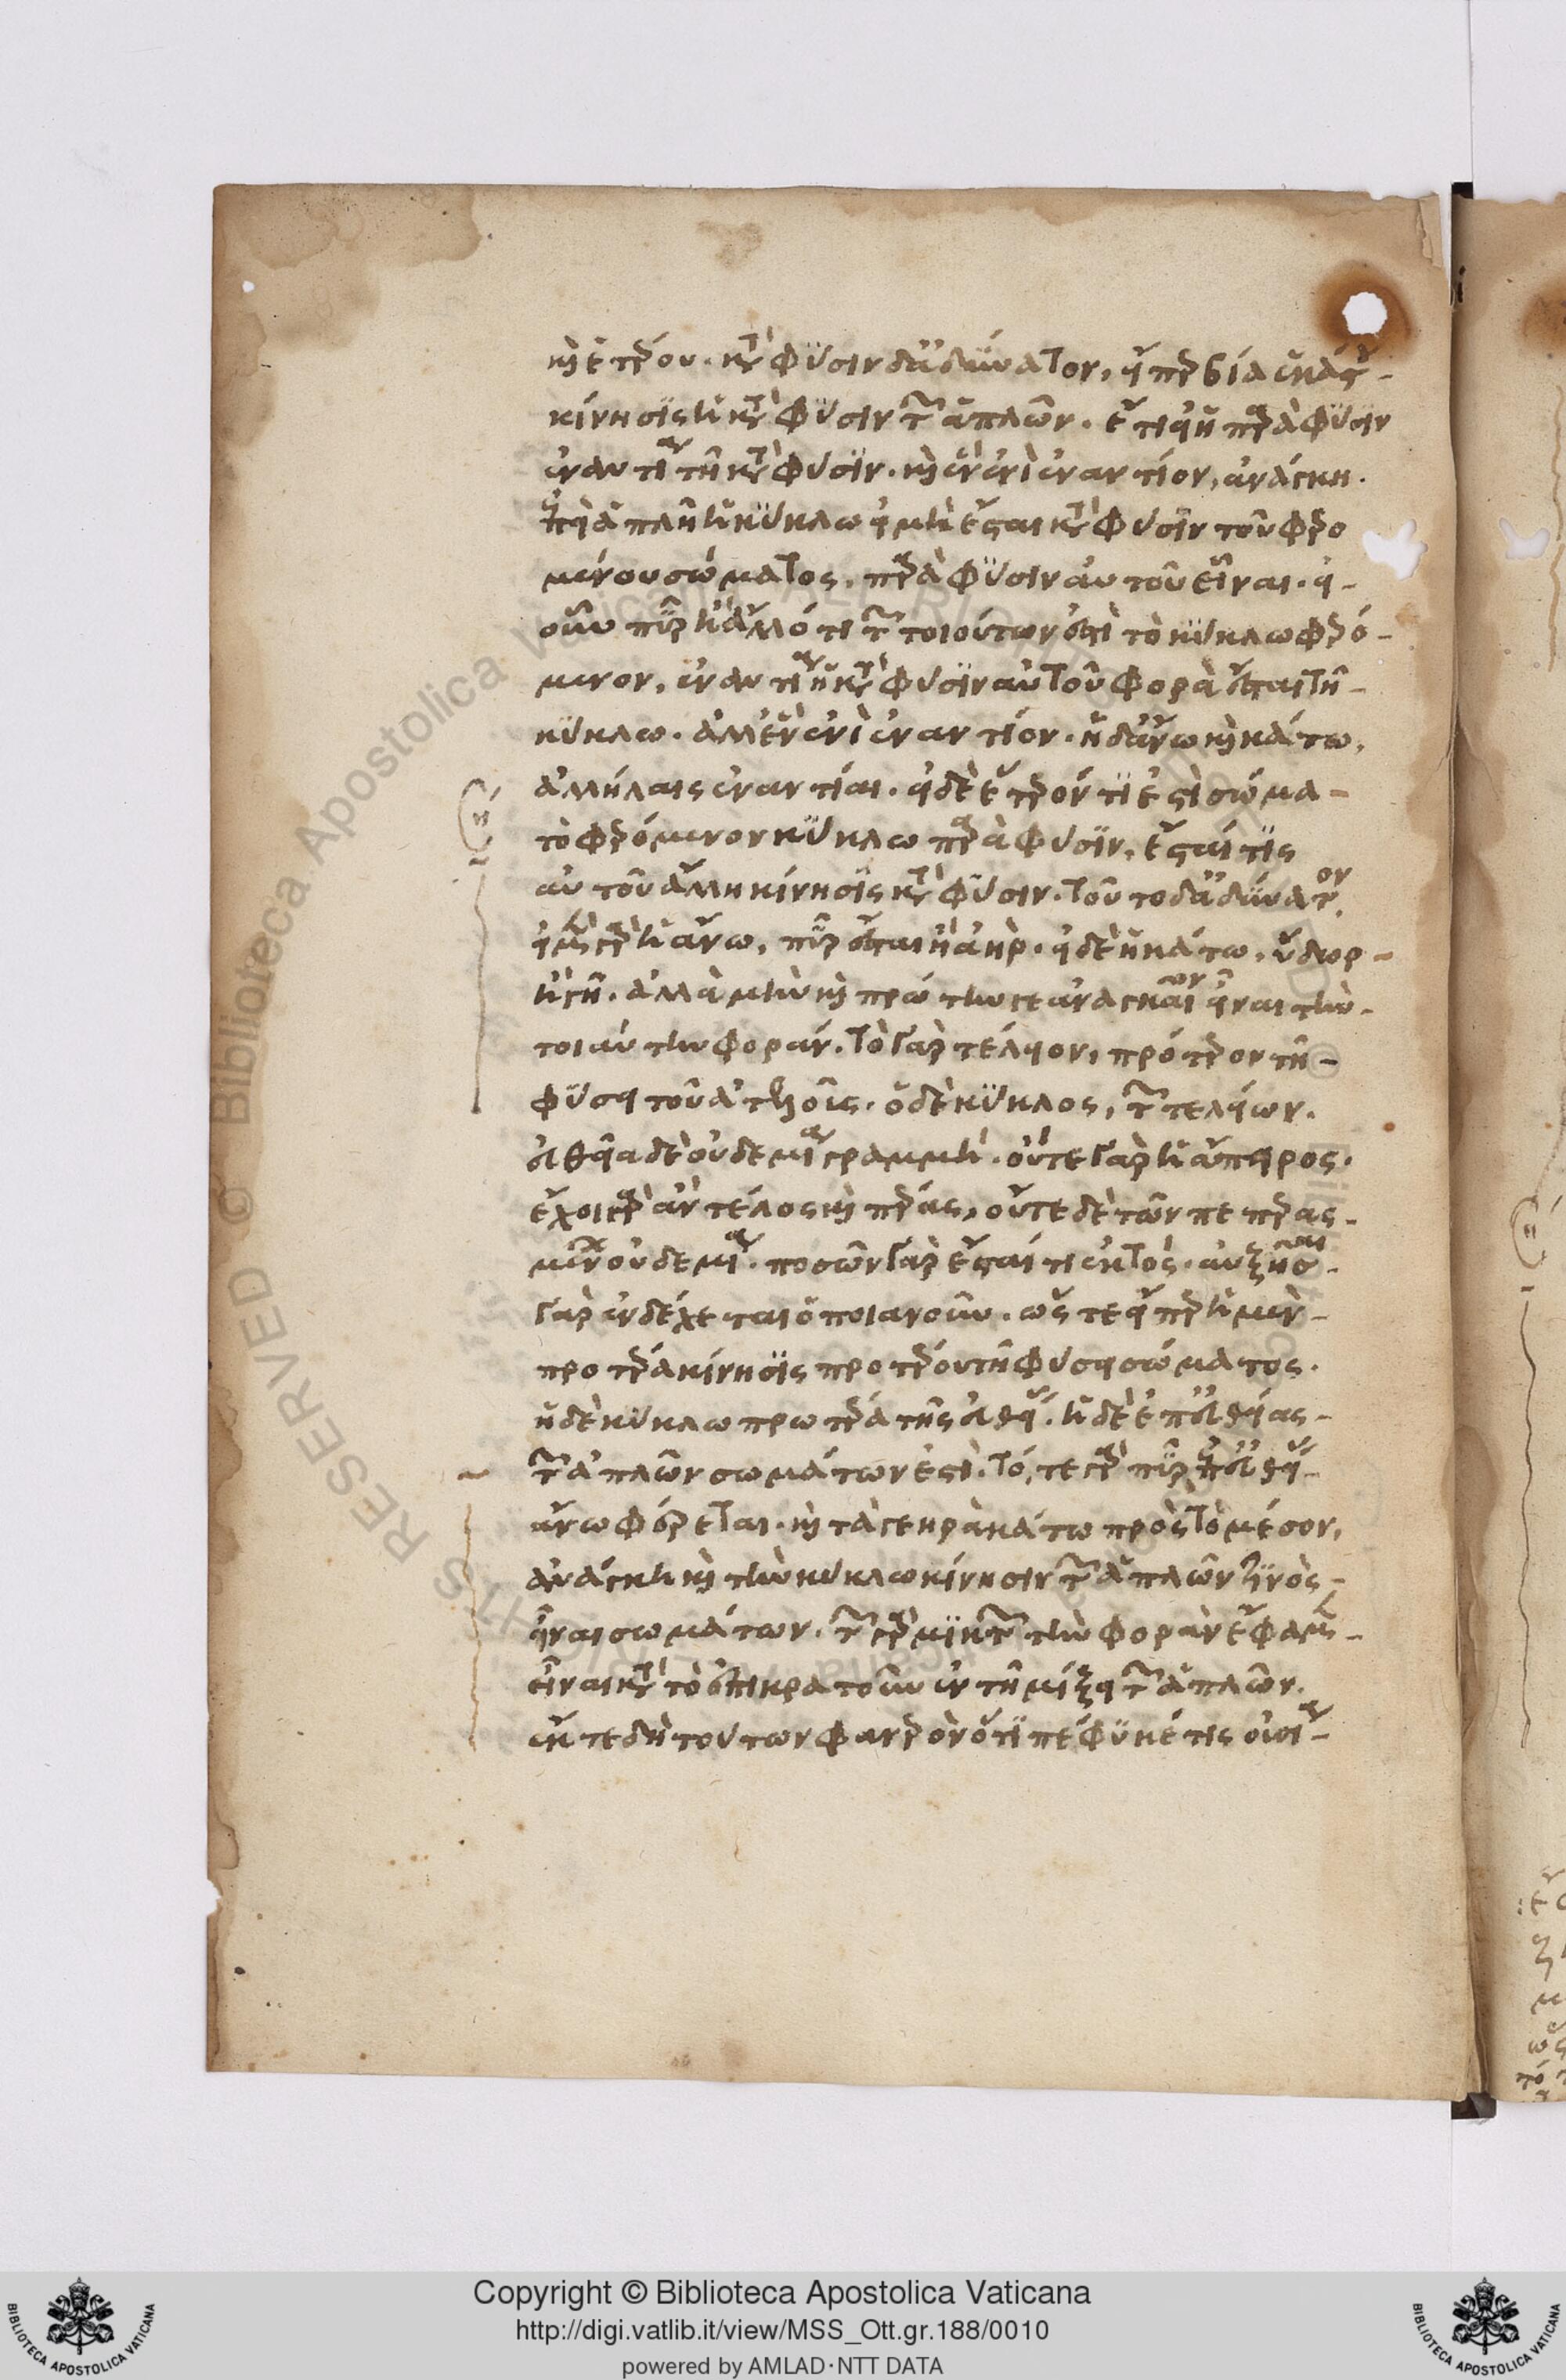 καὶ ἑτέρου. κατὰ φύσιν δ' ἀδύνατον, εἴπερ μία ἑκάστου
κίνησις ἡ κατὰ φύσιν τῶν ἁπλῶν. ἔτι εἰ ἡ παρὰ φύσιν
ἐναντία τῇ κατὰ φύσιν. καὶ ἓν ἑνὶ ἐναντίον, ἀνάγκη.
ἐπεὶ ἁπλῆ ἡ κύκλω εἰ μὴ ἔσται κατὰ φύσιν τοῦ φερο
μένου σώματος, παρὰ φύσιν αὐτοῦ εἶναι. εἰ
οὖν πῦρ ἢ ἄλλό τι τῶν τοιούτων ἐστὶ τὸ κύκλω φερό
μενον, ἐναντία ἡ κατὰ φύσιν αὐτοῦ φορὰ ἔσται τῇ
κύκλω. ἀλλ' ἓν ἑνὶ ἐναντίον. ἡ δ' ἄνω καὶ κάτω,
ἀλλήλαις ἐναντίαι. εἰ δὲ ἕτερόν τί ἐστι σῶμα
τὸ φερόμενον κύκλω παρὰ φύσιν, ἔσταί τις
αὐτοῦ ἄλλη κίνησις κατὰ φύσιν. τοῦτο δ' ἀδύνατον,
εἰ μὲν γὰρ ἡ ἄνω, πῦρ ἔσται ἢ ἀήρ. εἰ δὲ ἡ κάτω, ὕδωρ
ἢ γῆ. ἀλλὰ μὴν καὶ πρώτην γε ἀναγκαῖον εἶναι τὴν
τοιαύτην φοράν. τὸ γὰρ τέλειον, πρότερον τῇ
φύσει τοῦ ἀτελοῦς. ὁ δὲ κύκλος, τῶν τελείων.
εὐθεῖα δὲ οὐδεμία γραμμή. οὔτε γὰρ ἡ ἄπειρος.
ἔχοι γὰρ ἂν τέλος καὶ πέρας, οὔτε δὲ τῶν πεπερας
μένων οὐδεμία. πασῶν γὰρ ἔσταί τι ἐκτός. αὐξῆσαι
γὰρ ἐνδέχεται ὁποιανοῦν. ὥστε εἴπερ ἡ μὲν
προτέρα κίνησις προτέρου τῇ φύσει σώματος.
ἡ δὲ κύκλω πρωτέρα τῆς εὐθείας. ἡ δὲ ἐπ' εὐθείας
τῶν ἁπλῶν σωμάτων ἐστί. τό, τε γὰρ πῦρ ἐπ' εὐθείας
ἄνω φέρεται. καὶ τὰ γεηρὰ κάτω πρὸς τὸ μέσον,
ἀνάγκη καὶ τὴν κύκλω κίνησιν τῶν ἁπλῶν τινὸς
εἶναι σωμάτων. τῶν γὰρ μικτῶν τὴν φορὰν ἔφαμεν
εἶναι κατὰ τὸ ἐπικρατοῦν ἐν τῇ μίξει τῶν ἁπλῶν.
ἔκ τε δὴ τούτων φανερὸν ὅτι πέφυκέ τις οὐσία
Copyright © Biblioteca Apostolica Vaticana
http://digi.vatlib.it/view/MSS_Ott.gr.188/0010
powered by AMLAD·NTT DATA